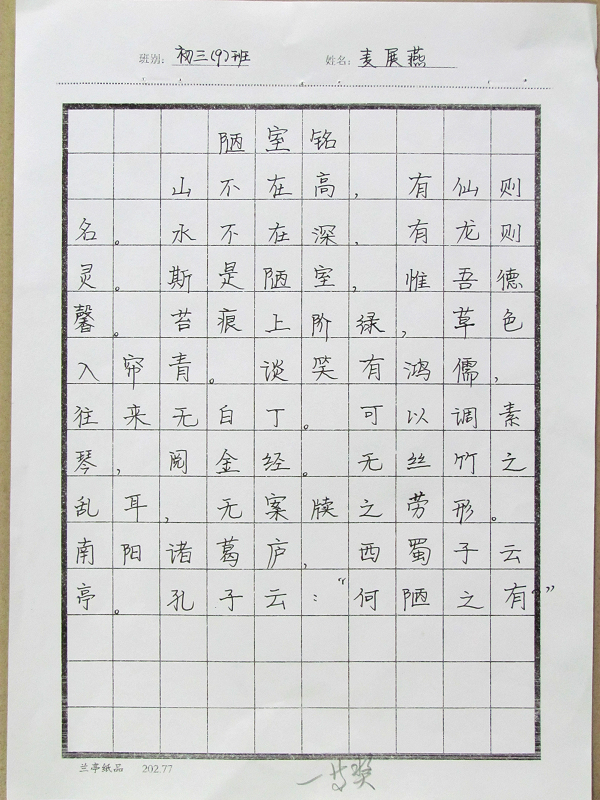 班别：初三(9)班 姓名：麦展燕
陋室铭
山不在高，有仙则
名。水不在深，有龙则
灵。斯是陋室，惟吾德
馨。苔痕上阶绿，草色
入帘青。谈笑有鸿儒，
往来无白丁。可以调素
琴，阅金经。无丝竹之
乱耳，无案牍之劳形。
南阳诸葛庐，西蜀子云
亭。孔子云：“何陋之有？”
兰亭纸品 202.77
一等奖